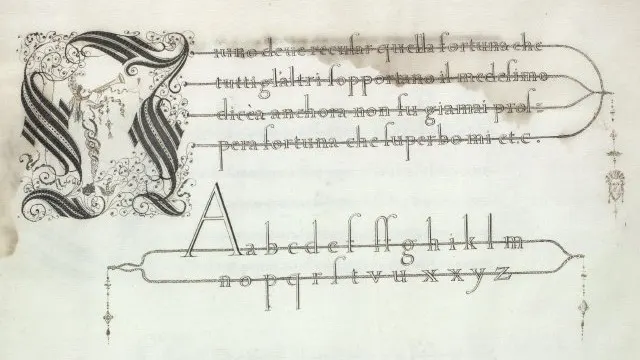 Niuno deue recular quella fortuna che
tutti gl'altri ſopportano il medeſimo
dicea anchora non fu giamai proſ-
pera fortuna che ſuperbo mi et.c.
A a b c d e f ſ ff g h i k l m
n o p q r ſ t v u x x y z